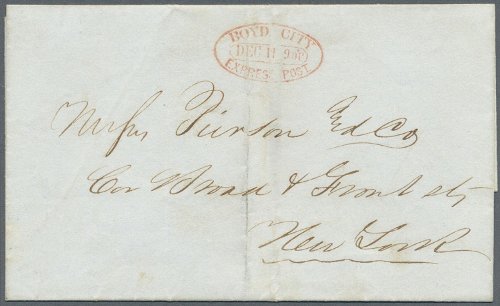 BOYD CITY
DEC 11
EXPRESS POST
Messrs Pierson & Co
Cor Broad & Front sts
New York